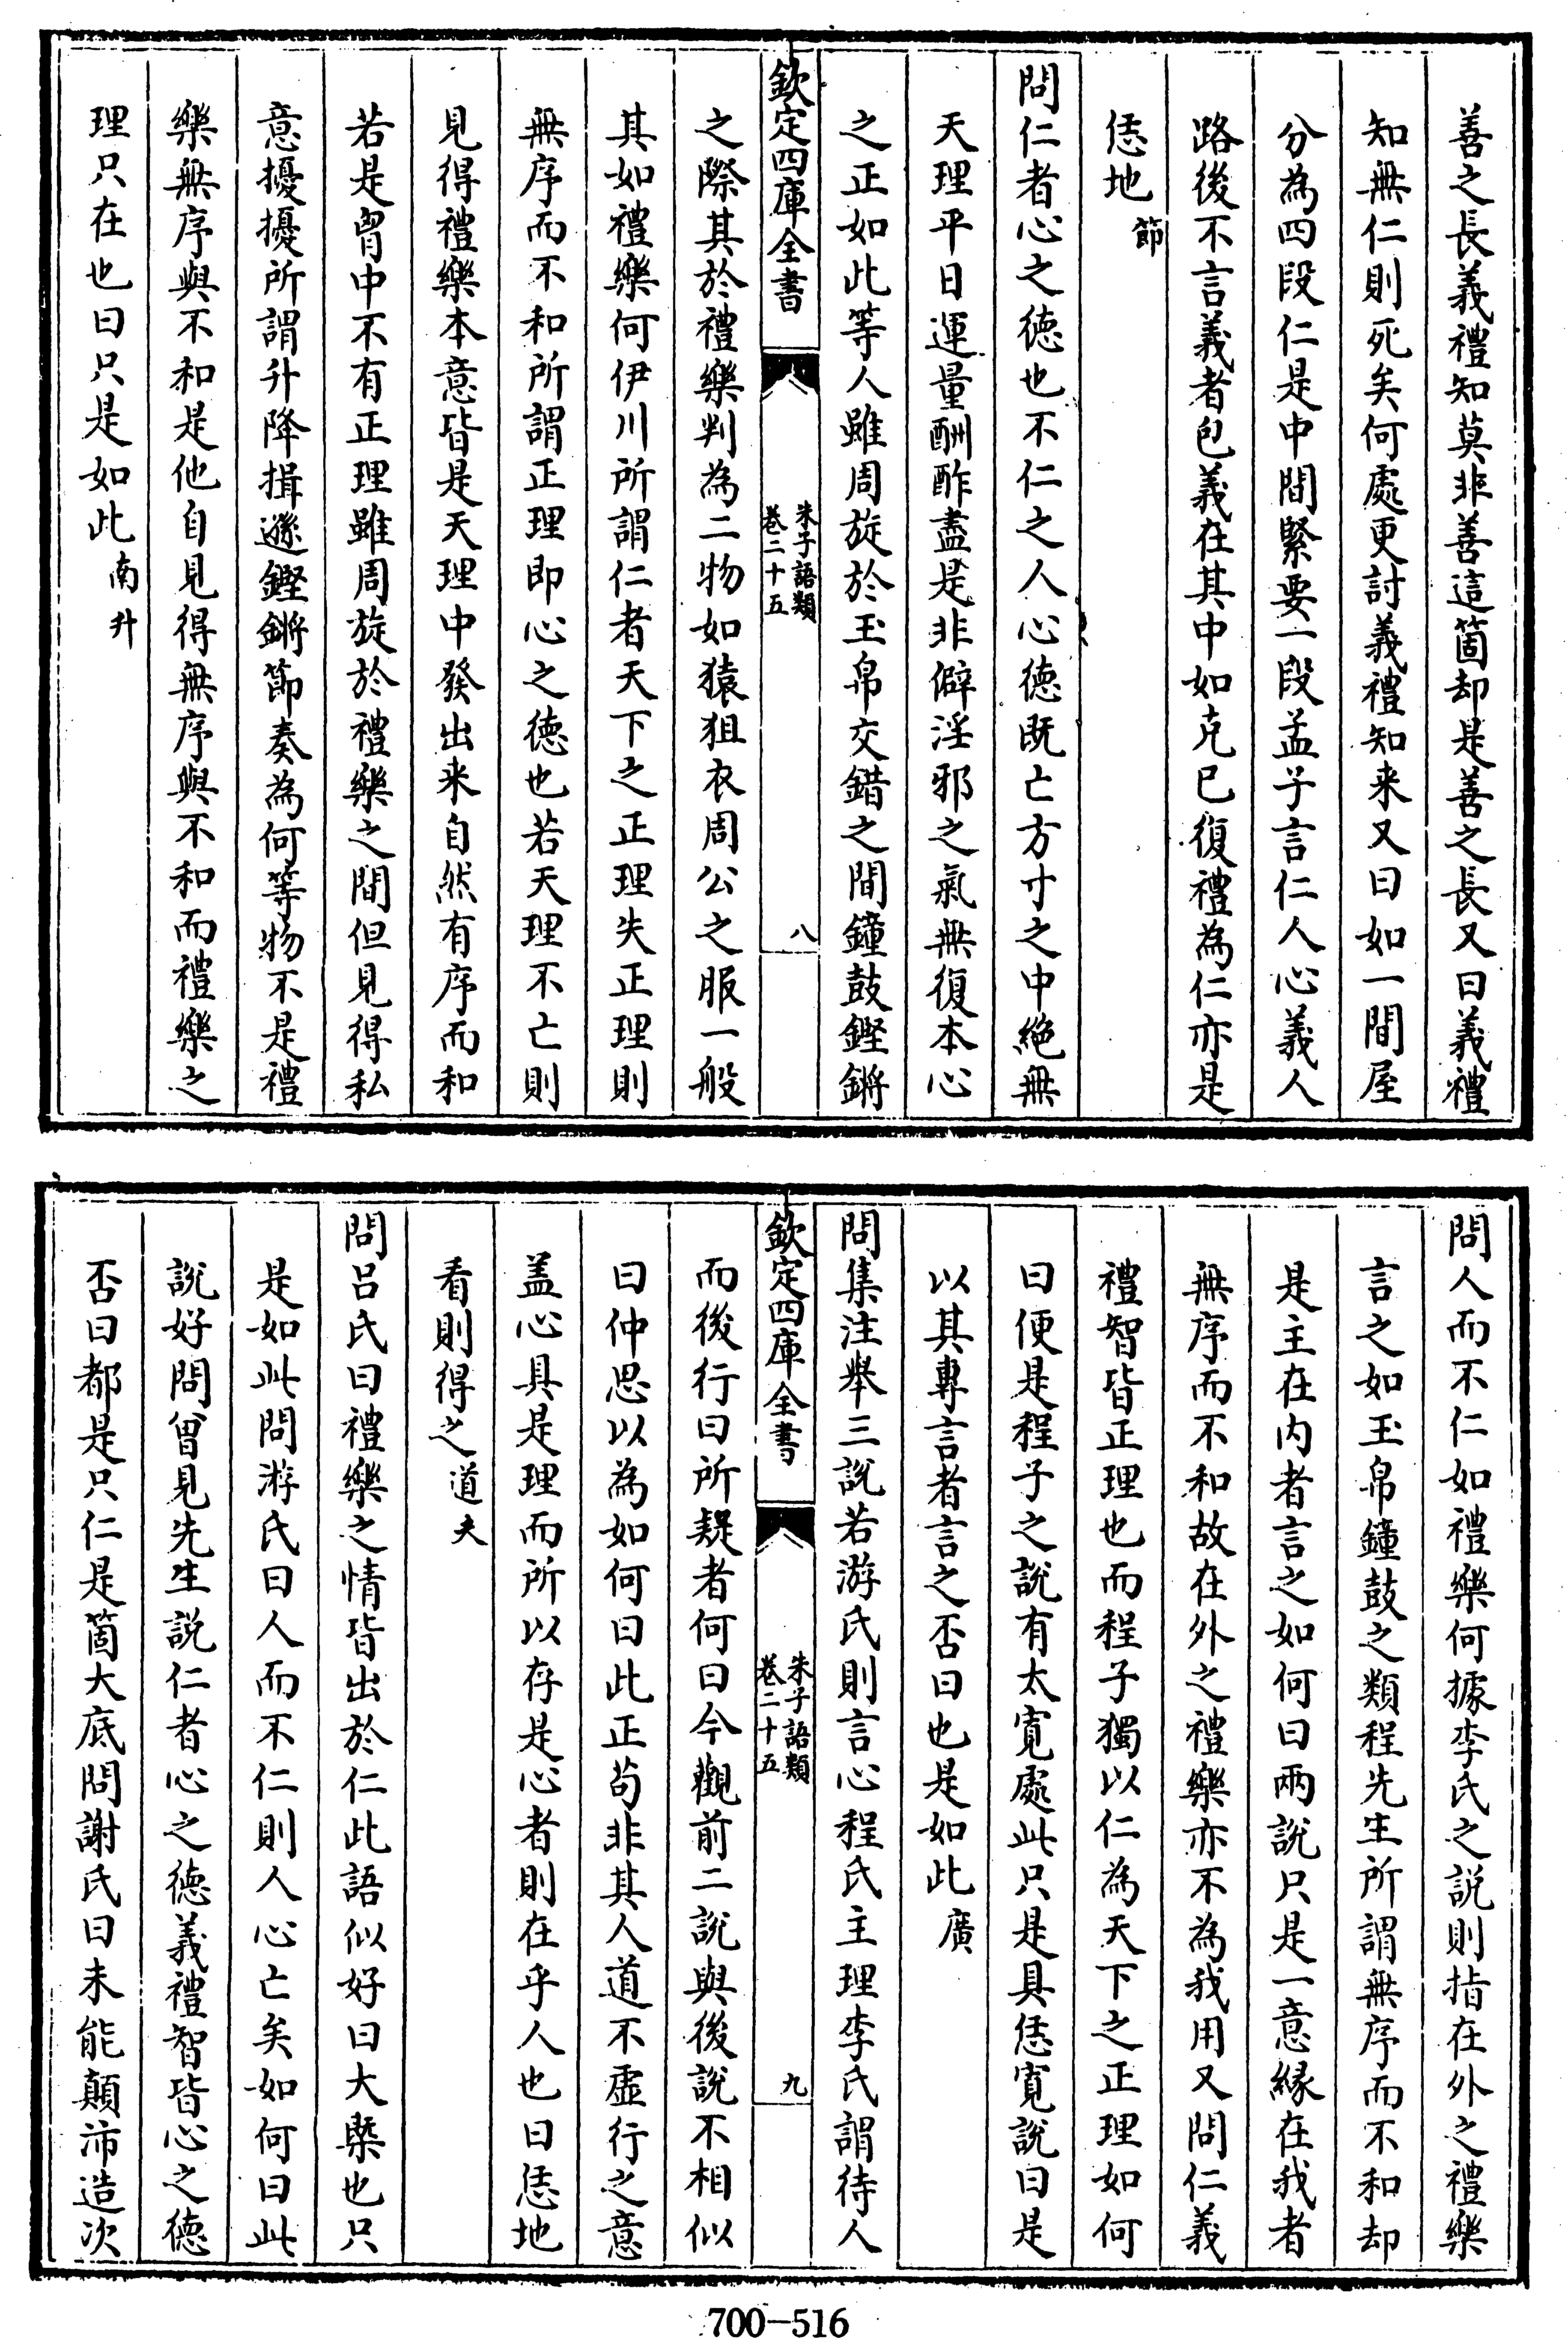 善之長義禮知莫非善這箇却是善之長又曰義禮
知無仁則死矣何處更討義禮知来又曰如一間屋
分為四段仁是中間緊要一段孟子言仁人心義人
路後不言義者包義在其中如克已復禮為仁亦是
恁地節
問仁者心之徳也不仁之人心徳既亡方寸之中絶無
天理平日運量酬酢盡是非僻淫邪之氣無復本心
之正如此等人雖周旋於玉帛交錯之間鐘鼓鏗鏘
欽定四庫全書
朱子語類
卷二十五
八
之際其於禮樂判為二物如猿狙衣周公之服一般
其如禮樂何伊川所謂仁者天下之正理失正理則
無序而不和所謂正理即心之徳也若天理不亡則
見得禮樂本意皆是天理中發出来自然有序而和
若是胷中不有正理雖周旋於禮樂之間但見得私
意擾擾所謂升降揖遜鏗鏘節奏為何等物不是禮
樂無序與不和是他自見得無序與不和而禮樂之
理只在也曰只是如此南升
問人而不仁如禮樂何據李氏之説則指在外之禮樂
言之如玉帛鐘鼓之類程先生所謂無序而不和却
是主在内者言之如何曰兩說只是一意縁在我者
無序而不和故在外之禮樂亦不為我用又問仁義
禮智皆正理也而程子獨以仁為天下之正理如何
曰便是程子之說有太寛處此只是具恁寛說曰是
以其專言者言之否曰也是如此廣
問集注舉三說若游氏則言心程氏主理李氏謂待人
欽定四庫全書
朱子語類
卷二十五
九
而後行曰所疑者何曰今觀前二說與後說不相似
曰仲思以為如何曰此正茍非其人道不虚行之意
盖心具是理而所以存是心者則在乎人也曰恁地
看則得之道夫
問吕氏曰禮樂之情皆出於仁此語似好曰大槩也只
是如此問游氏曰人而不仁則人心亡矣如何曰此
說好問曾見先生説仁者心之徳義禮智皆心之徳
否曰都是只仁是箇大底問謝氏曰未能顛沛造次
700-516